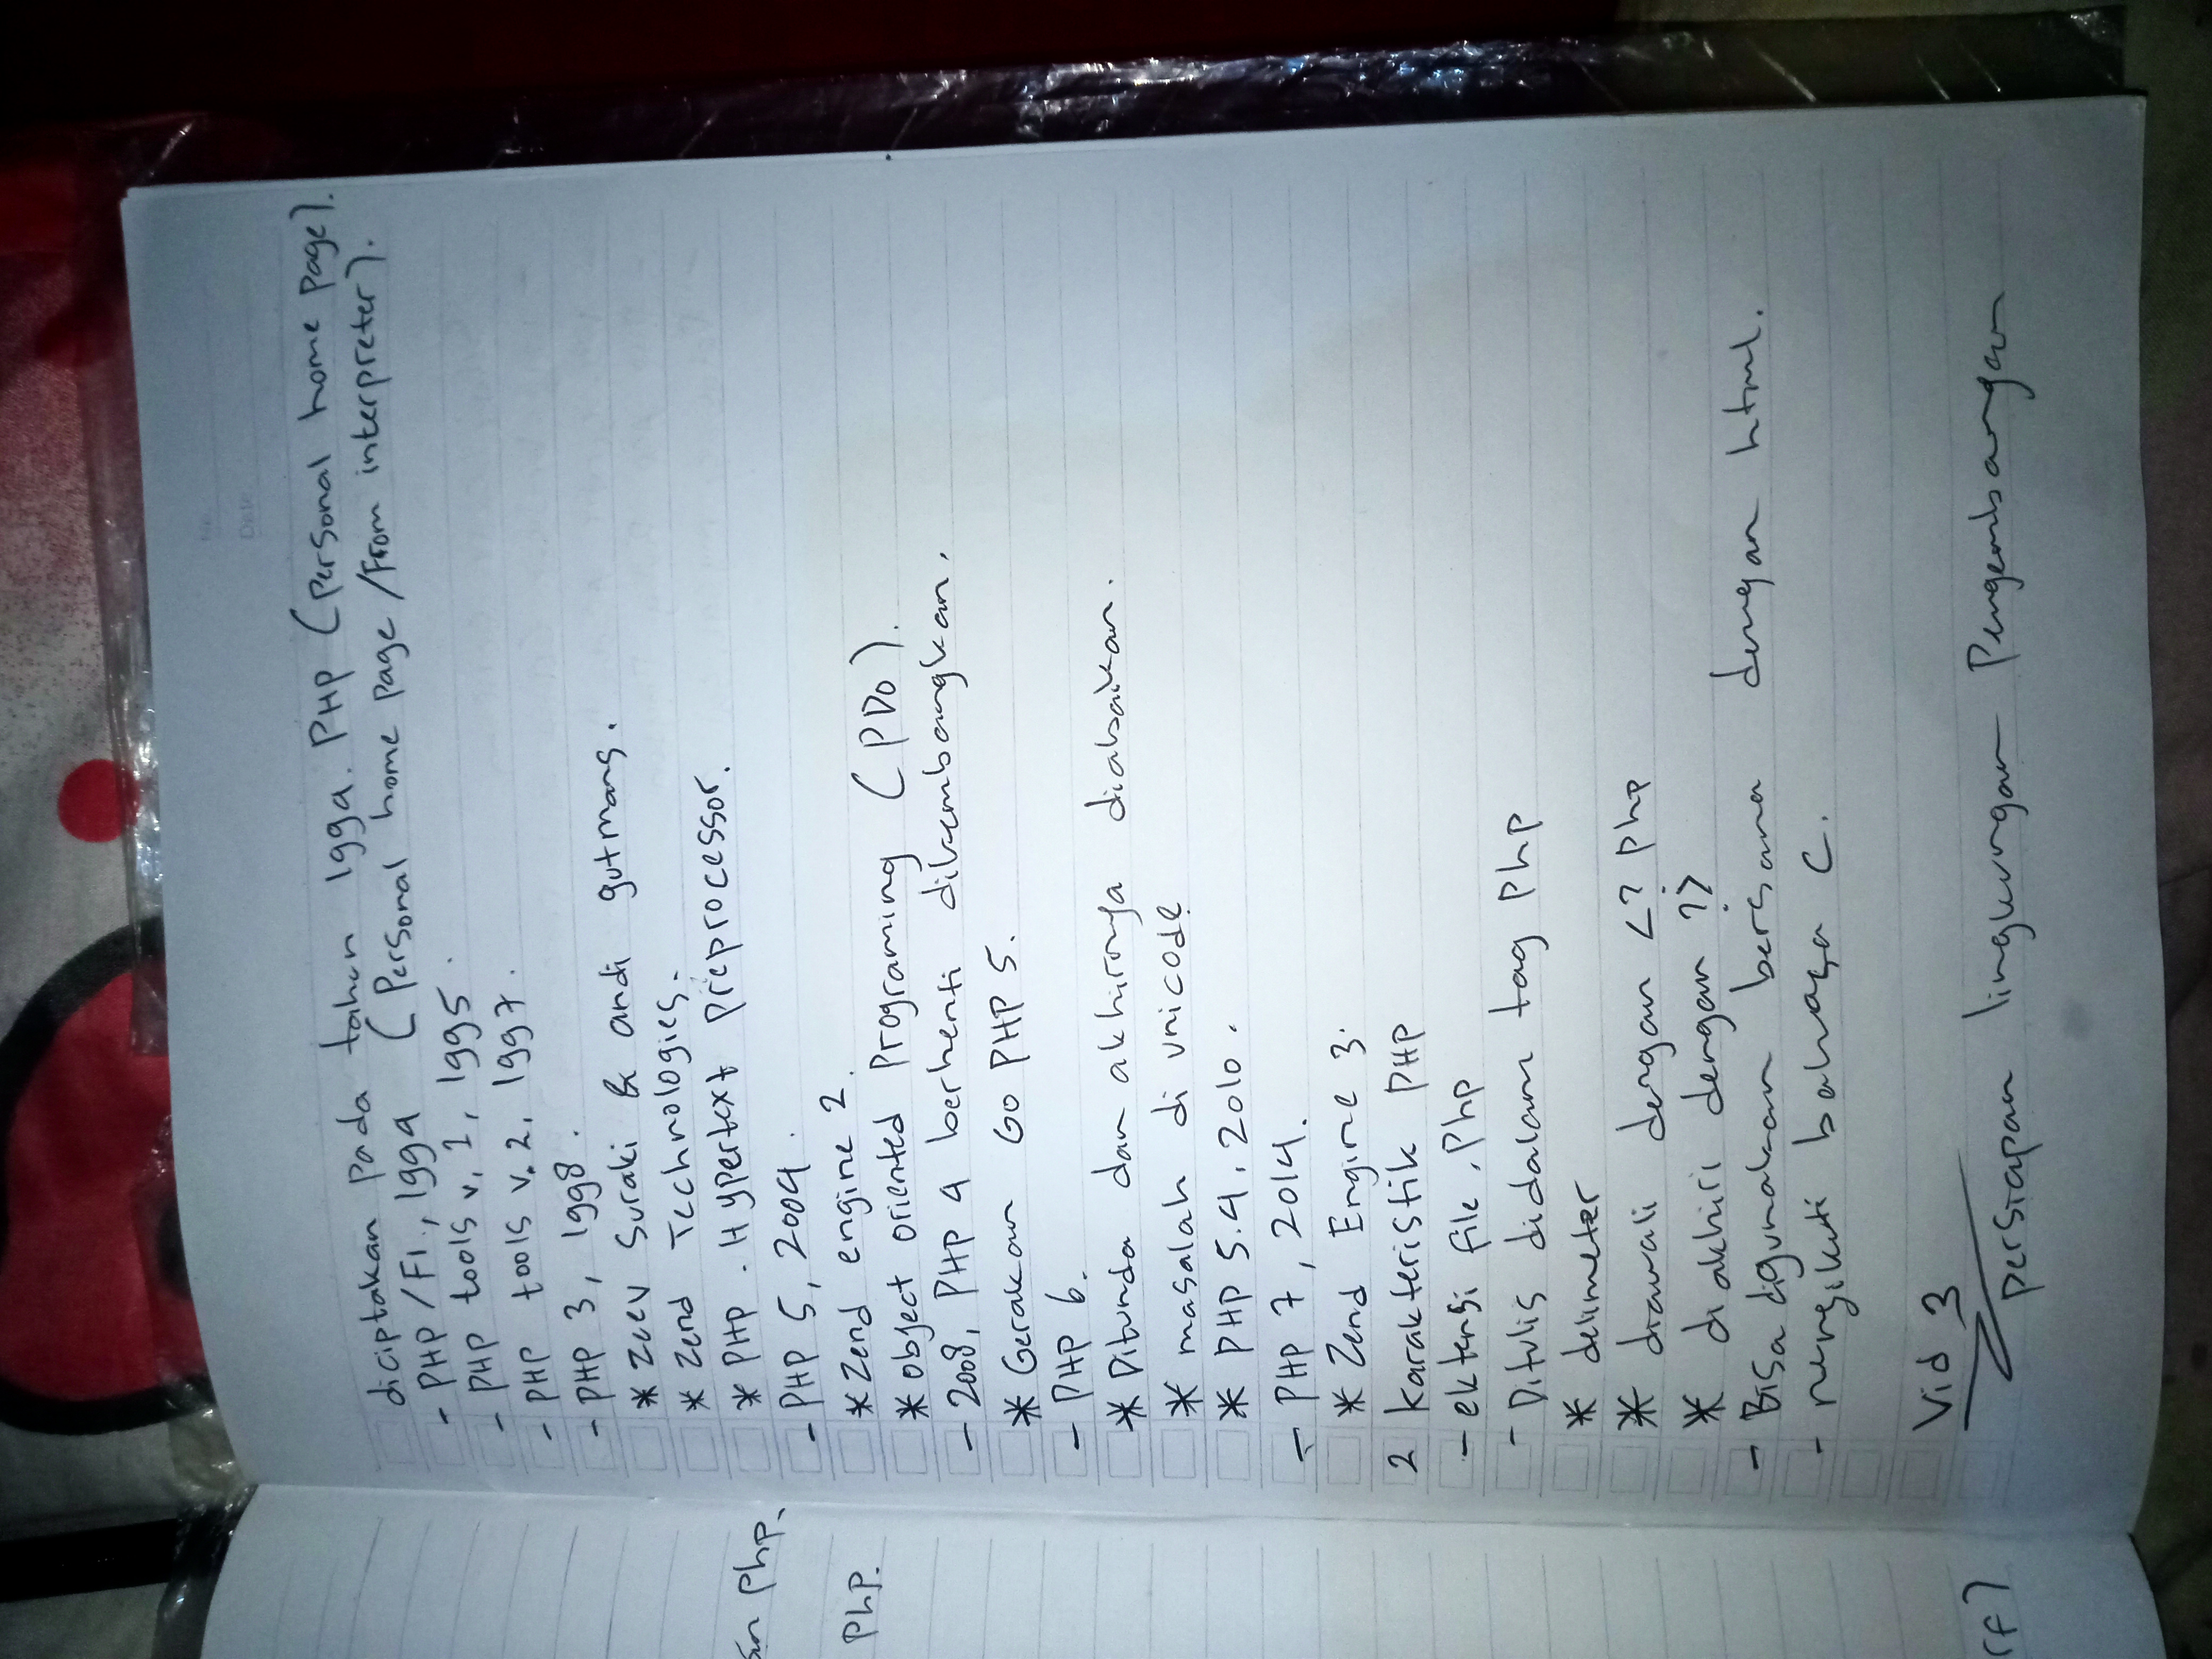 No.
Date.
diciptakan pada tahun 1994. PHP (Personal home page).
- PHP /FI., 1994 (Personal home page /From interpreter).
- PHP tools v. 1, 1995.
- PHP tools v. 2, 1997.
- PHP 3, 1998.
* Zeev Suraki & andi gutmans.
* Zend Technologies.
* PHP . Hypertext preprocessor.
- PHP 5, 2004.
* Zend engine 2.
* object oriented Programing (PDO).
- 2008, PHP 4 berhenti dikembangkan.
* Gerakan Go PHP 5.
- PHP 6.
* Ditunda dan akhirnya diabaikan.
* masalah di unicode
* PHP 5.4, 2010.
- PHP 7, 2014.
* Zend Engine 3.
2 karakteristik PHP
- ektensi file .Php
- Ditulis didalam tag Php
* delimeter
* diawali dengan <? Php
* diakhiri dengan ?>
- Bisa digunakan bersama dengan html.
- mengikuti bahasa C.
Vid 3
persiapan lingkungan Pengembangan
Php.
Php.